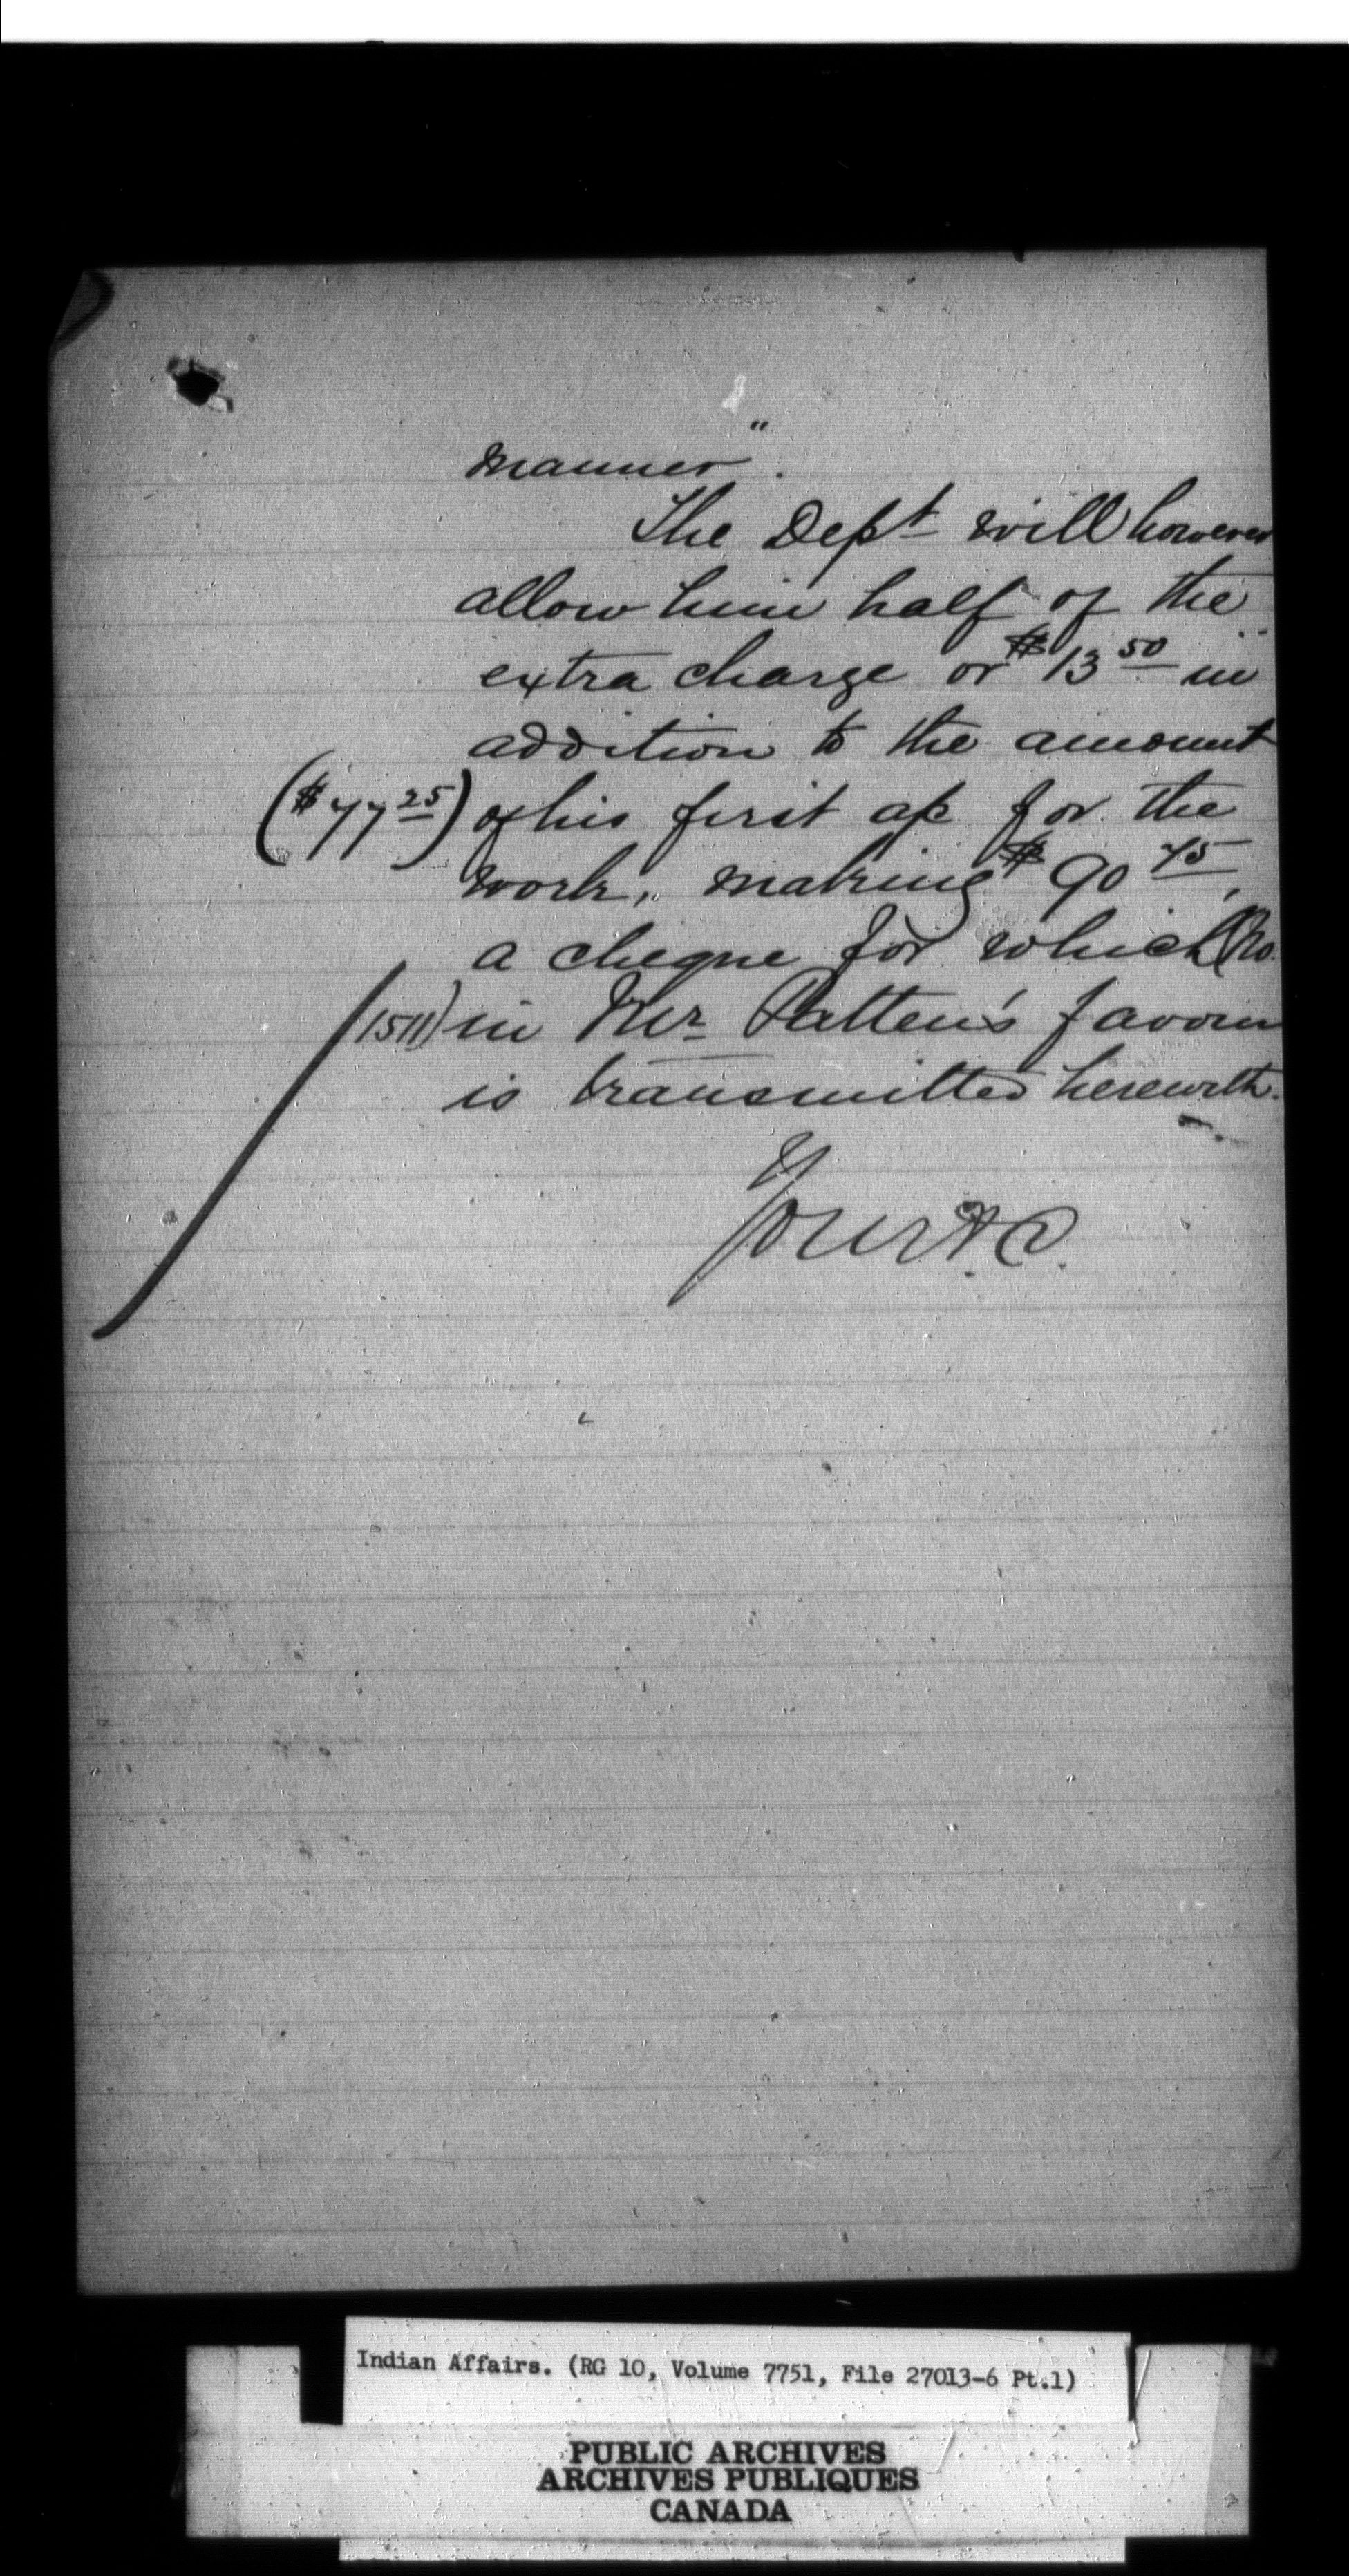 manner".
The Dept will however
allow him half of the
extra charge or $13 50 in
addition to the amount
($77 25) of his first a/c for the
work, making $90 75,
a cheque for which (No.
1511) in Mr Patten's favour
is transmitted herewith.
Yours &c.
Indian Affairs. (RG 10, Volume 7751, File 27013-6 Pt.1)
PUBLIC ARCHIVES
ARCHIVES PUBLIQUES
CANADA